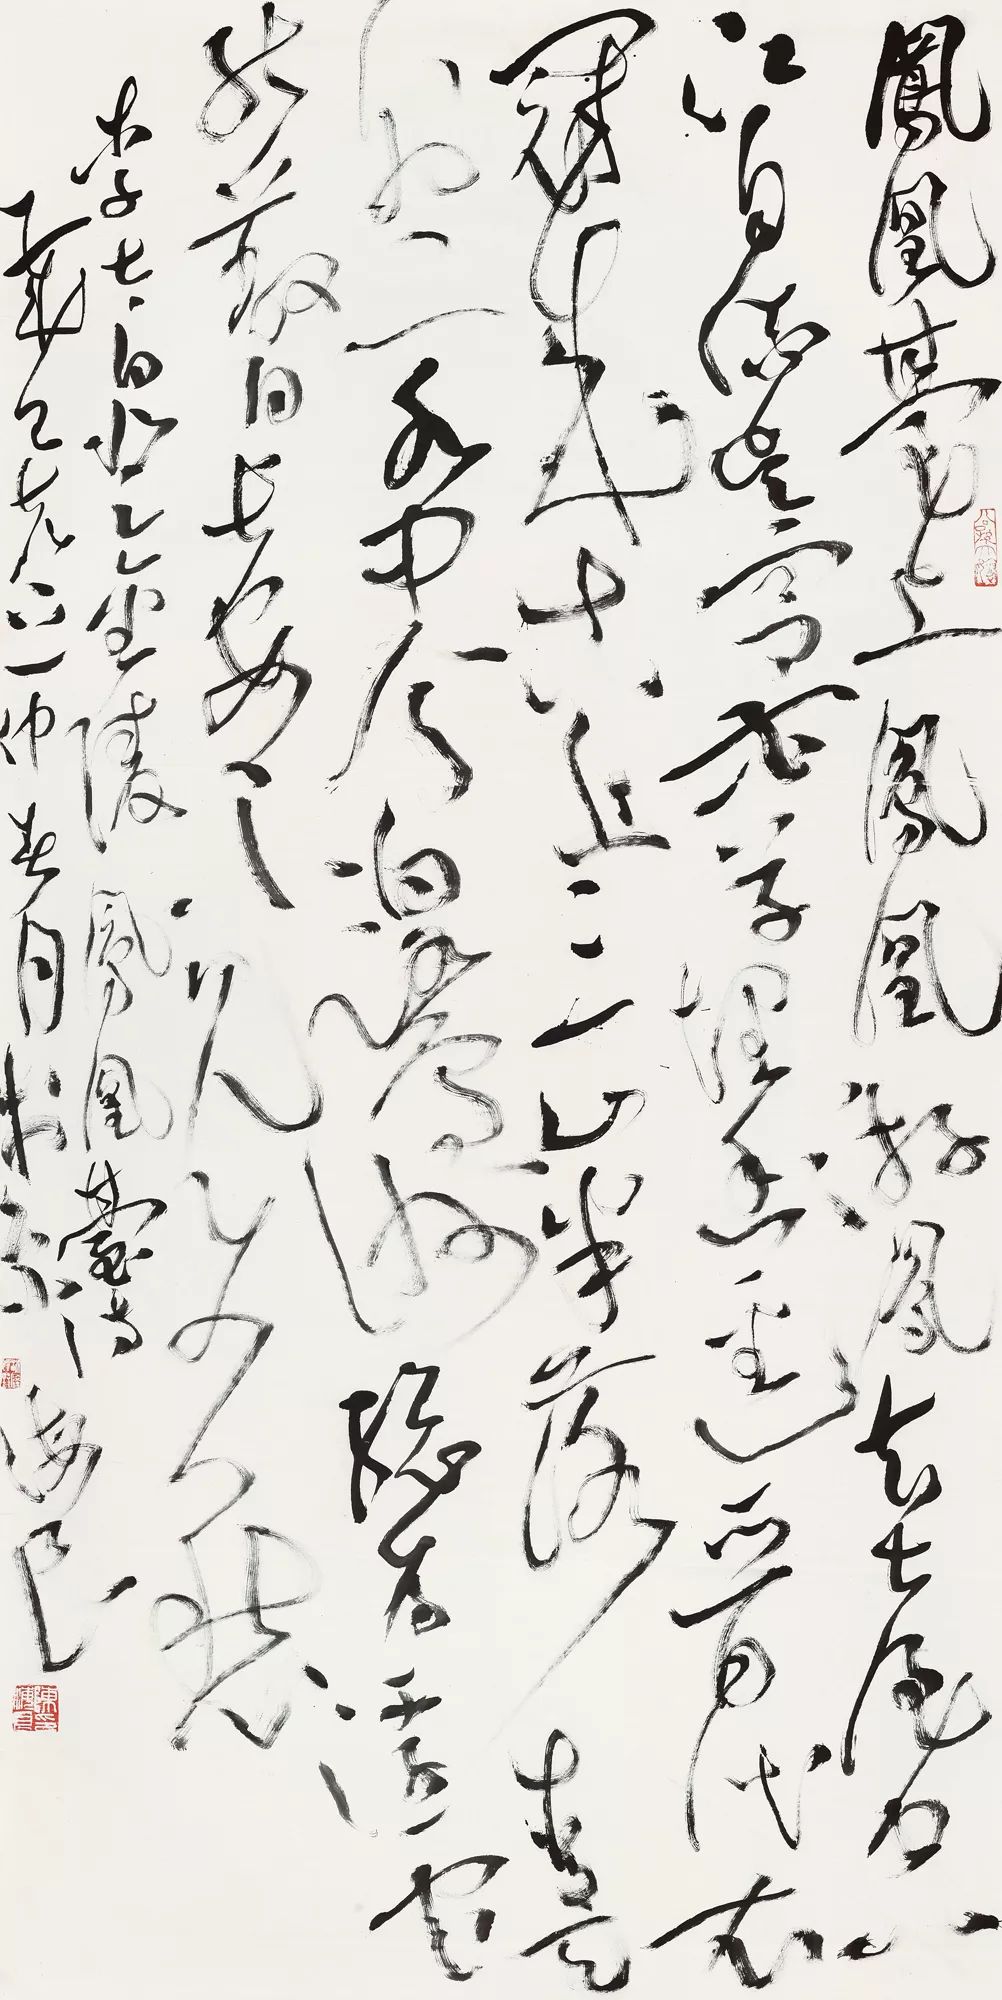 鳳凰臺上鳳凰遊鳳去臺空
江自流吳宮花草埋幽逕晉代衣
冠成古丘三山半落青天
外一水中分白鷺洲總為浮雲
能蔽日長安不見使人愁
李太白登金陵鳳凰臺詩
仲春月於京海良